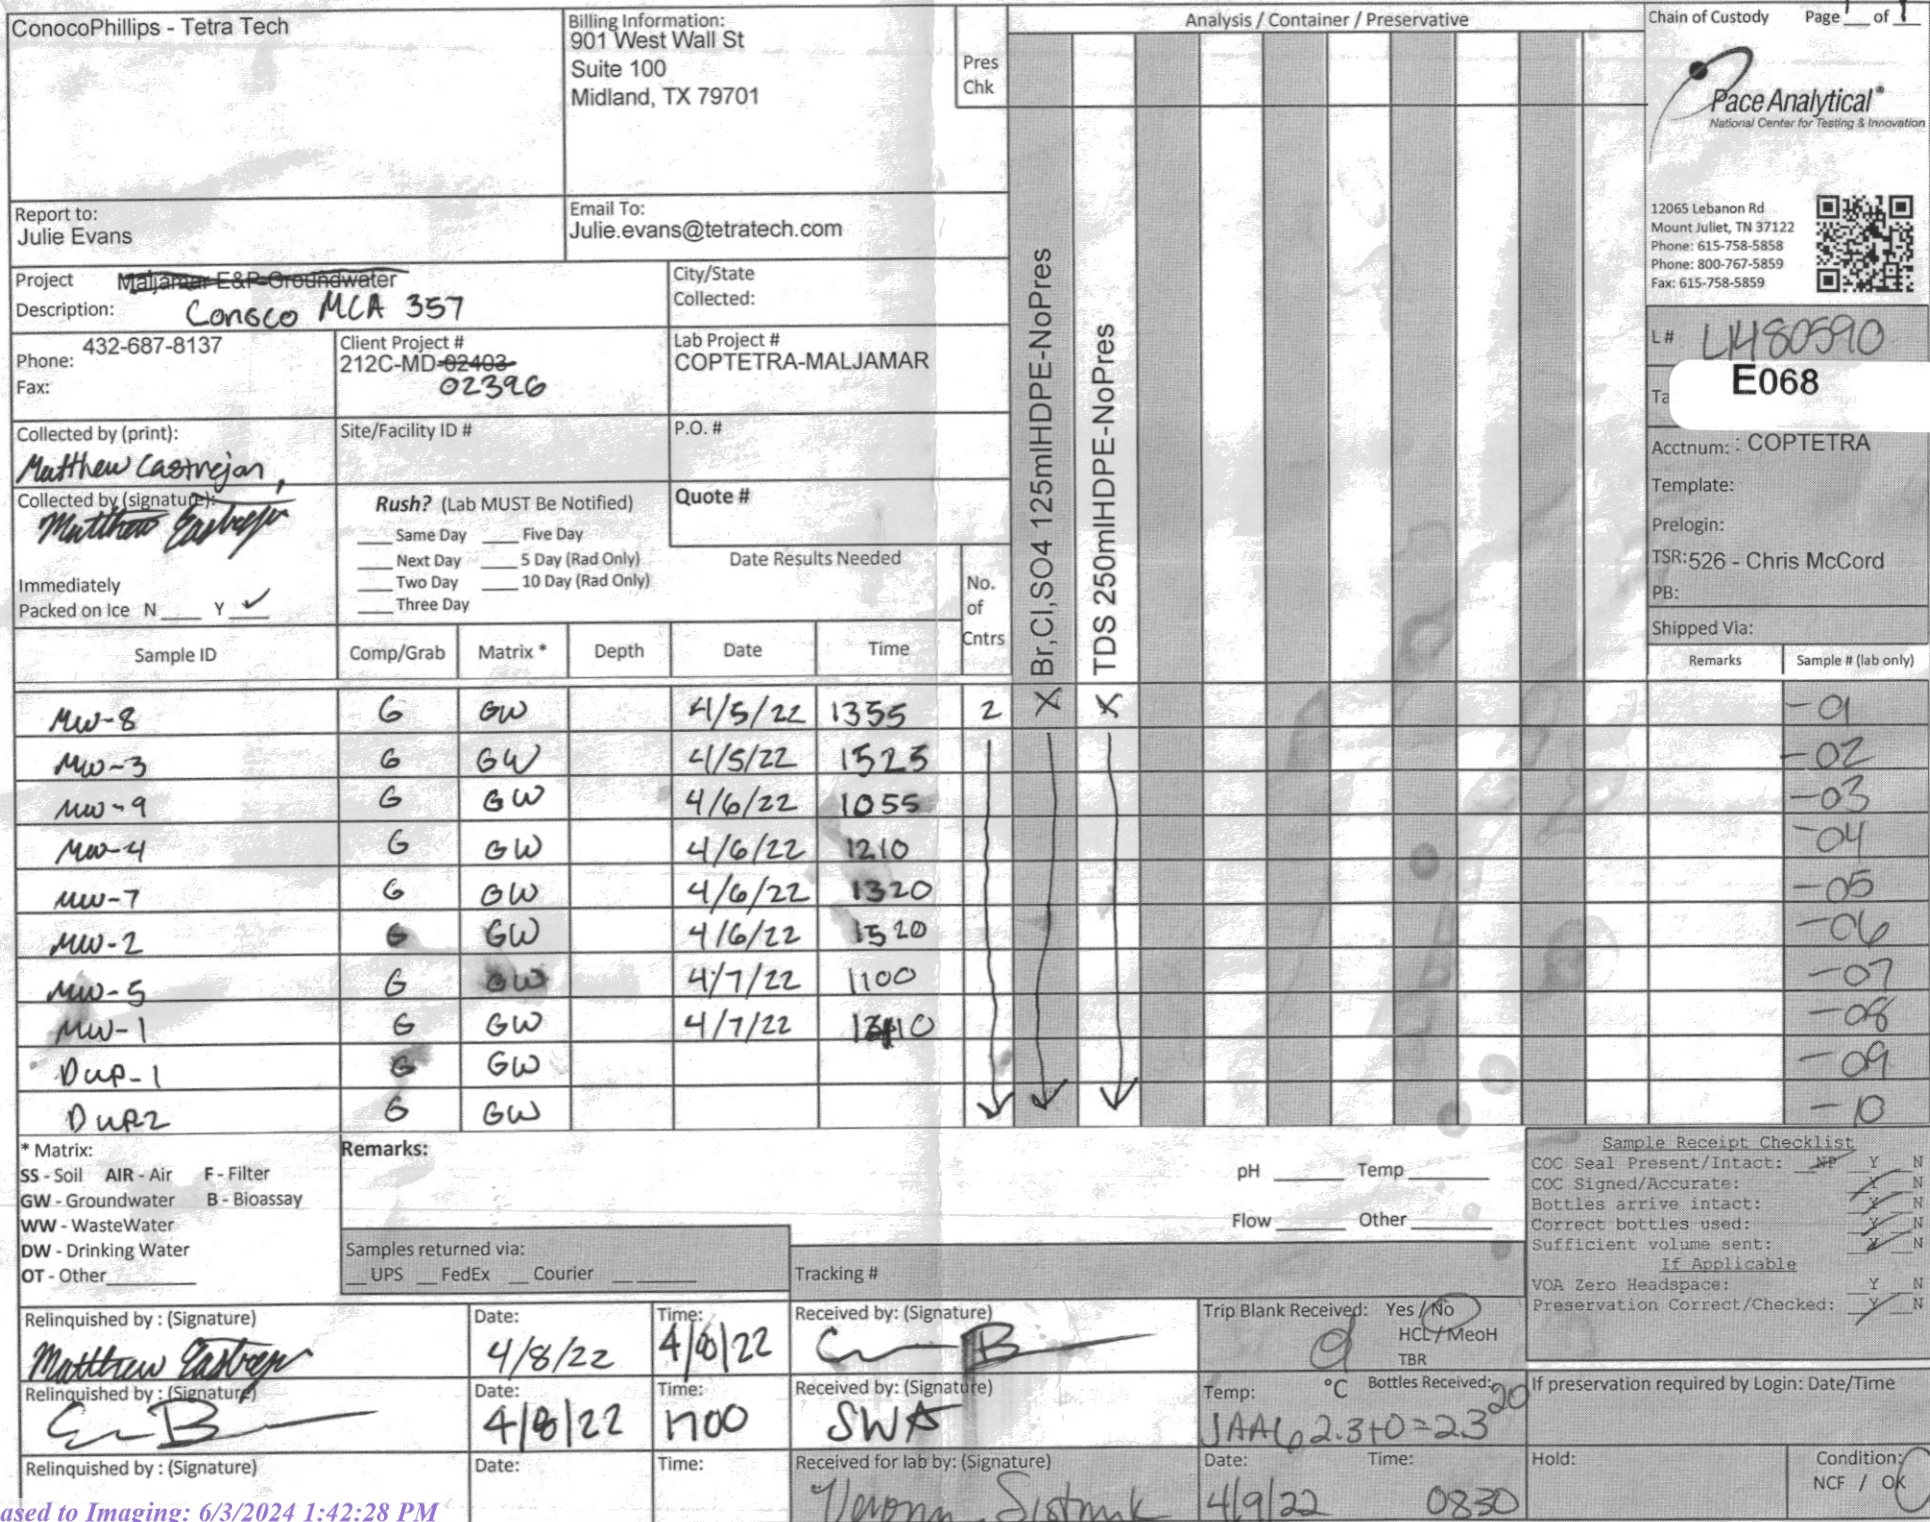 ConocoPhillips - Tetra Tech
Billing Information:
901 West Wall St
Suite 100
Midland, TX 79701
Pres
Chk
Analysis / Container / Preservative
Chain of Custody Page of
Pace Analytical®
National Center for Testing & Innovation
12065 Lebanon Rd
Mount Juliet, TN 37122
Phone: 615-758-5858
Phone: 800-767-5859
Fax: 615-758-5859
Report to:
Julie Evans
Email To:
Julie.evans@tetratech.com
Project Maljamar E&P Groundwater
Description: Conoco MCA 357
City/State
Collected:
Phone: 432-687-8137
Fax:
Client Project #
212C-MD-02403
02396
Lab Project #
COPTETRA-MALJAMAR
L # L1480590
E068
Ta
Acctnum: : COPTETRA
Template:
Prelogin:
TSR: 526 - Chris McCord
PB:
Shipped Via:
Collected by (print):
Matthew Castrejon,
Site/Facility ID #
P.O. #
Collected by (signature):
Matthew
Rush? (Lab MUST Be Notified)
Same Day Five Day
Next Day 5 Day (Rad Only)
Two Day 10 Day (Rad Only)
Three Day
Quote #
Date Results Needed
Immediately
Packed on Ice N Y ✓
No.
of
Cntrs
Br,Cl,SO4 125mlHDPE-NoPres
TDS 250mlHDPE-NoPres
Sample ID Comp/Grab Matrix * Depth Date Time Remarks Sample # (lab only)
MW-8 G GW 4/5/22 1355 2 X X -01
MW-3 G GW 4/5/22 1525 -02
MW-9 G GW 4/6/22 1055 -03
MW-4 G GW 4/6/22 1210 -04
MW-7 G GW 4/6/22 1320 -05
MW-2 G GW 4/6/22 1520 -06
MW-5 G GW 4/7/22 1100 -07
MW-1 G GW 4/7/22 -08
DUP-1 G GW -09
DUP2 G GW -10
* Matrix:
SS - Soil AIR - Air F - Filter
GW - Groundwater B - Bioassay
WW - WasteWater
DW - Drinking Water
OT - Other
Remarks:
pH Temp
Flow Other
Samples returned via:
UPS FedEx Courier
Tracking #
Sample Receipt Checklist
COC Seal Present/Intact: NP Y N
COC Signed/Accurate: Y N
Bottles arrive intact: Y N
Correct bottles used: Y N
Sufficient volume sent: Y N
If Applicable
VOA Zero Headspace: Y N
Preservation Correct/Checked: Y N
Relinquished by : (Signature)
Matthew
Date:
4/8/22
Time:
4/8/22
Received by: (Signature)
Trip Blank Received: Yes / No
HCL / MeoH
TBR
Relinquished by : (Signature)
Date:
4/8/22
Time:
1700
Received by: (Signature)
SWA
Temp: °C Bottles Received: 20
2.3+0=2.3
If preservation required by Login: Date/Time
Relinquished by : (Signature)
Date:
Time:
Received for lab by: (Signature)
Date:
4/9/22
Time:
0830
Hold:
Condition:
NCF / OK
ased to Imaging: 6/3/2024 1:42:28 PM